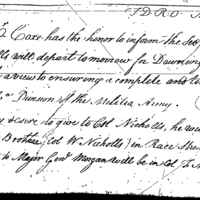 T.D.R.O
Coxe has the honor to inform the Sec
will depart tomorrow for Downing
a view to ensuring a complete and
Dunson of the Militia Army.
desire to give to Col Nicholls, he
Brother, Col W Nicholls) in Race Stre
to Major Genl Morgan will be in